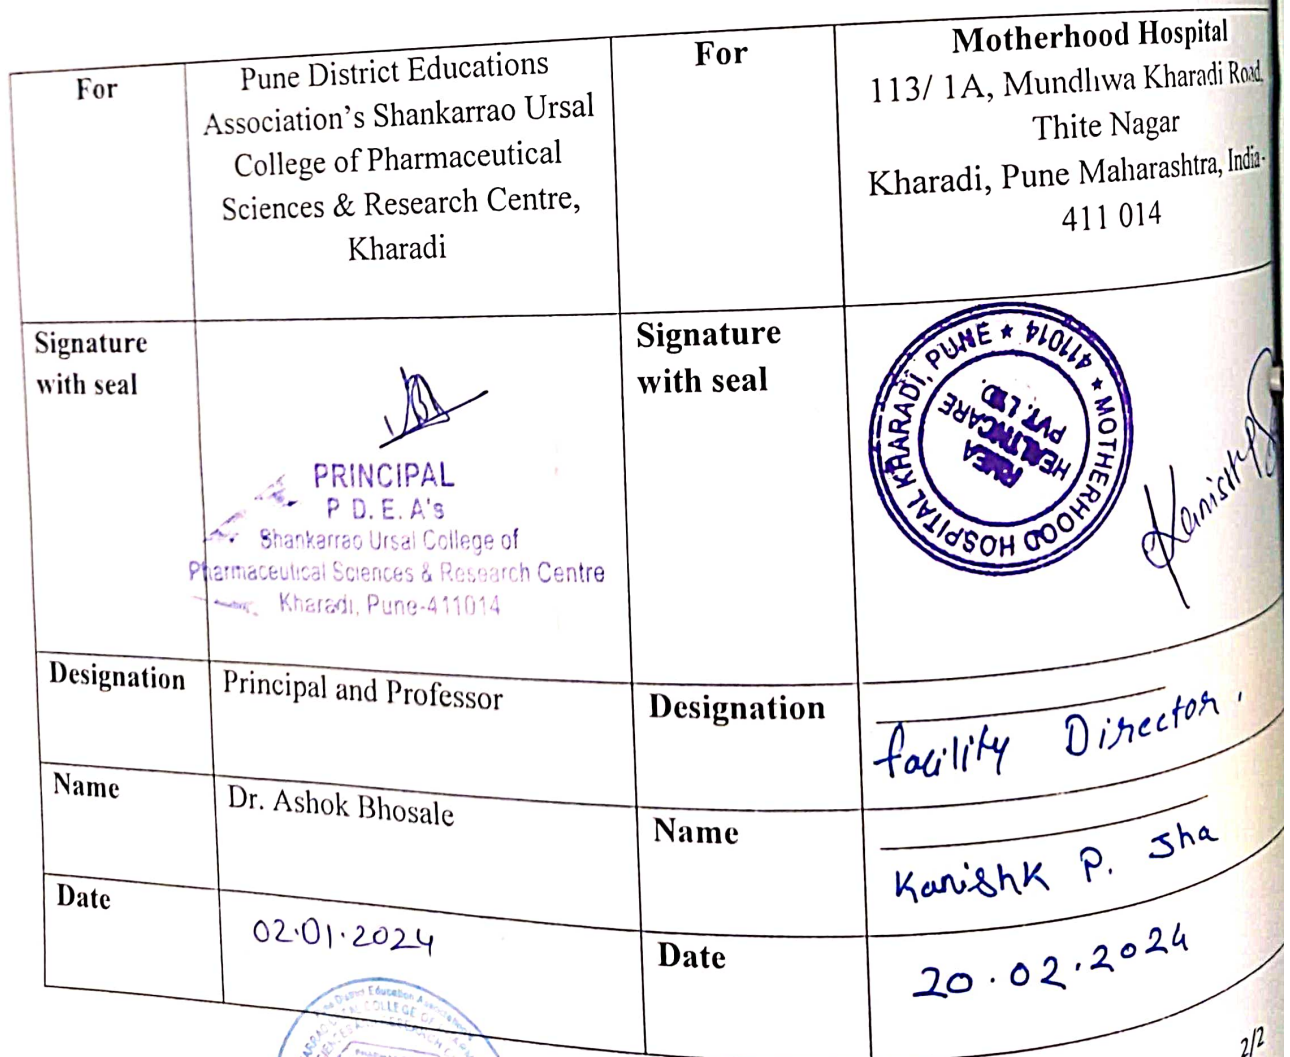 For
Pune District Educations
Association's Shankarrao Ursal
College of Pharmaceutical
Sciences & Research Centre,
Kharadi
For
Motherhood Hospital
113/ 1A, Mundhwa Kharadi Road,
Thite Nagar
Kharadi, Pune Maharashtra, India-
411 014
Signature
with seal
PRINCIPAL
P D. E. A's
Shankarrao Ursal College of
Pharmaceutical Sciences & Research Centre
Kharadi, Pune-411014
Signature
with seal
MOTHERHOOD HOSPITAL KHARADI, PUNE ★ 411014 ★
RHEA
HEALTHCARE
PVT. LTD.
Designation
Principal and Professor
Designation
facility Director.
Name
Dr. Ashok Bhosale
Name
Kanishk P. Jha
Date
02.01.2024
Date
20.02.2024
2/2